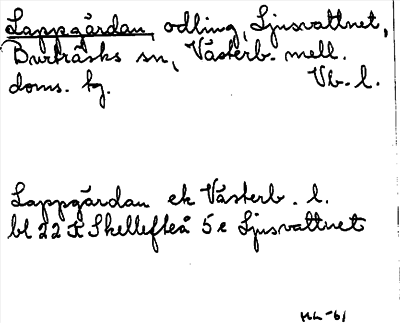 Lappgärdan, odling, Ljusvattnet,
Burträsks sn, Västerb. mell.
doms. hg. Vb. l.
Lappgärdan ek Västerb. l.
bl 22 K Skellefteå 5 e Ljusvattnet